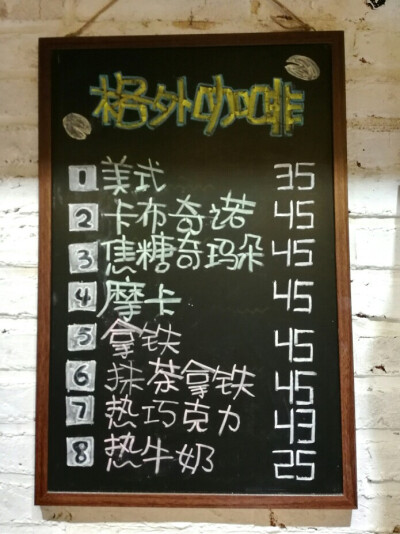 格外咖啡
1 美式 35
2 卡布奇诺 45
3 焦糖奇玛朵 45
4 摩卡 45
5 拿铁 45
6 抹茶拿铁 45
7 热巧克力 43
8 热牛奶 25